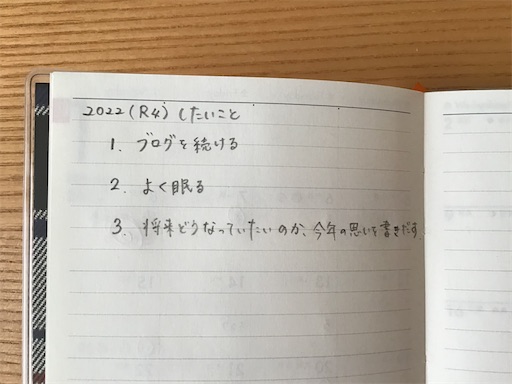 2022(R4)したいこと
1. ブログを続ける
2. よく眠る
3. 将来どうなっていたいのか、今年の思いを書きだす。